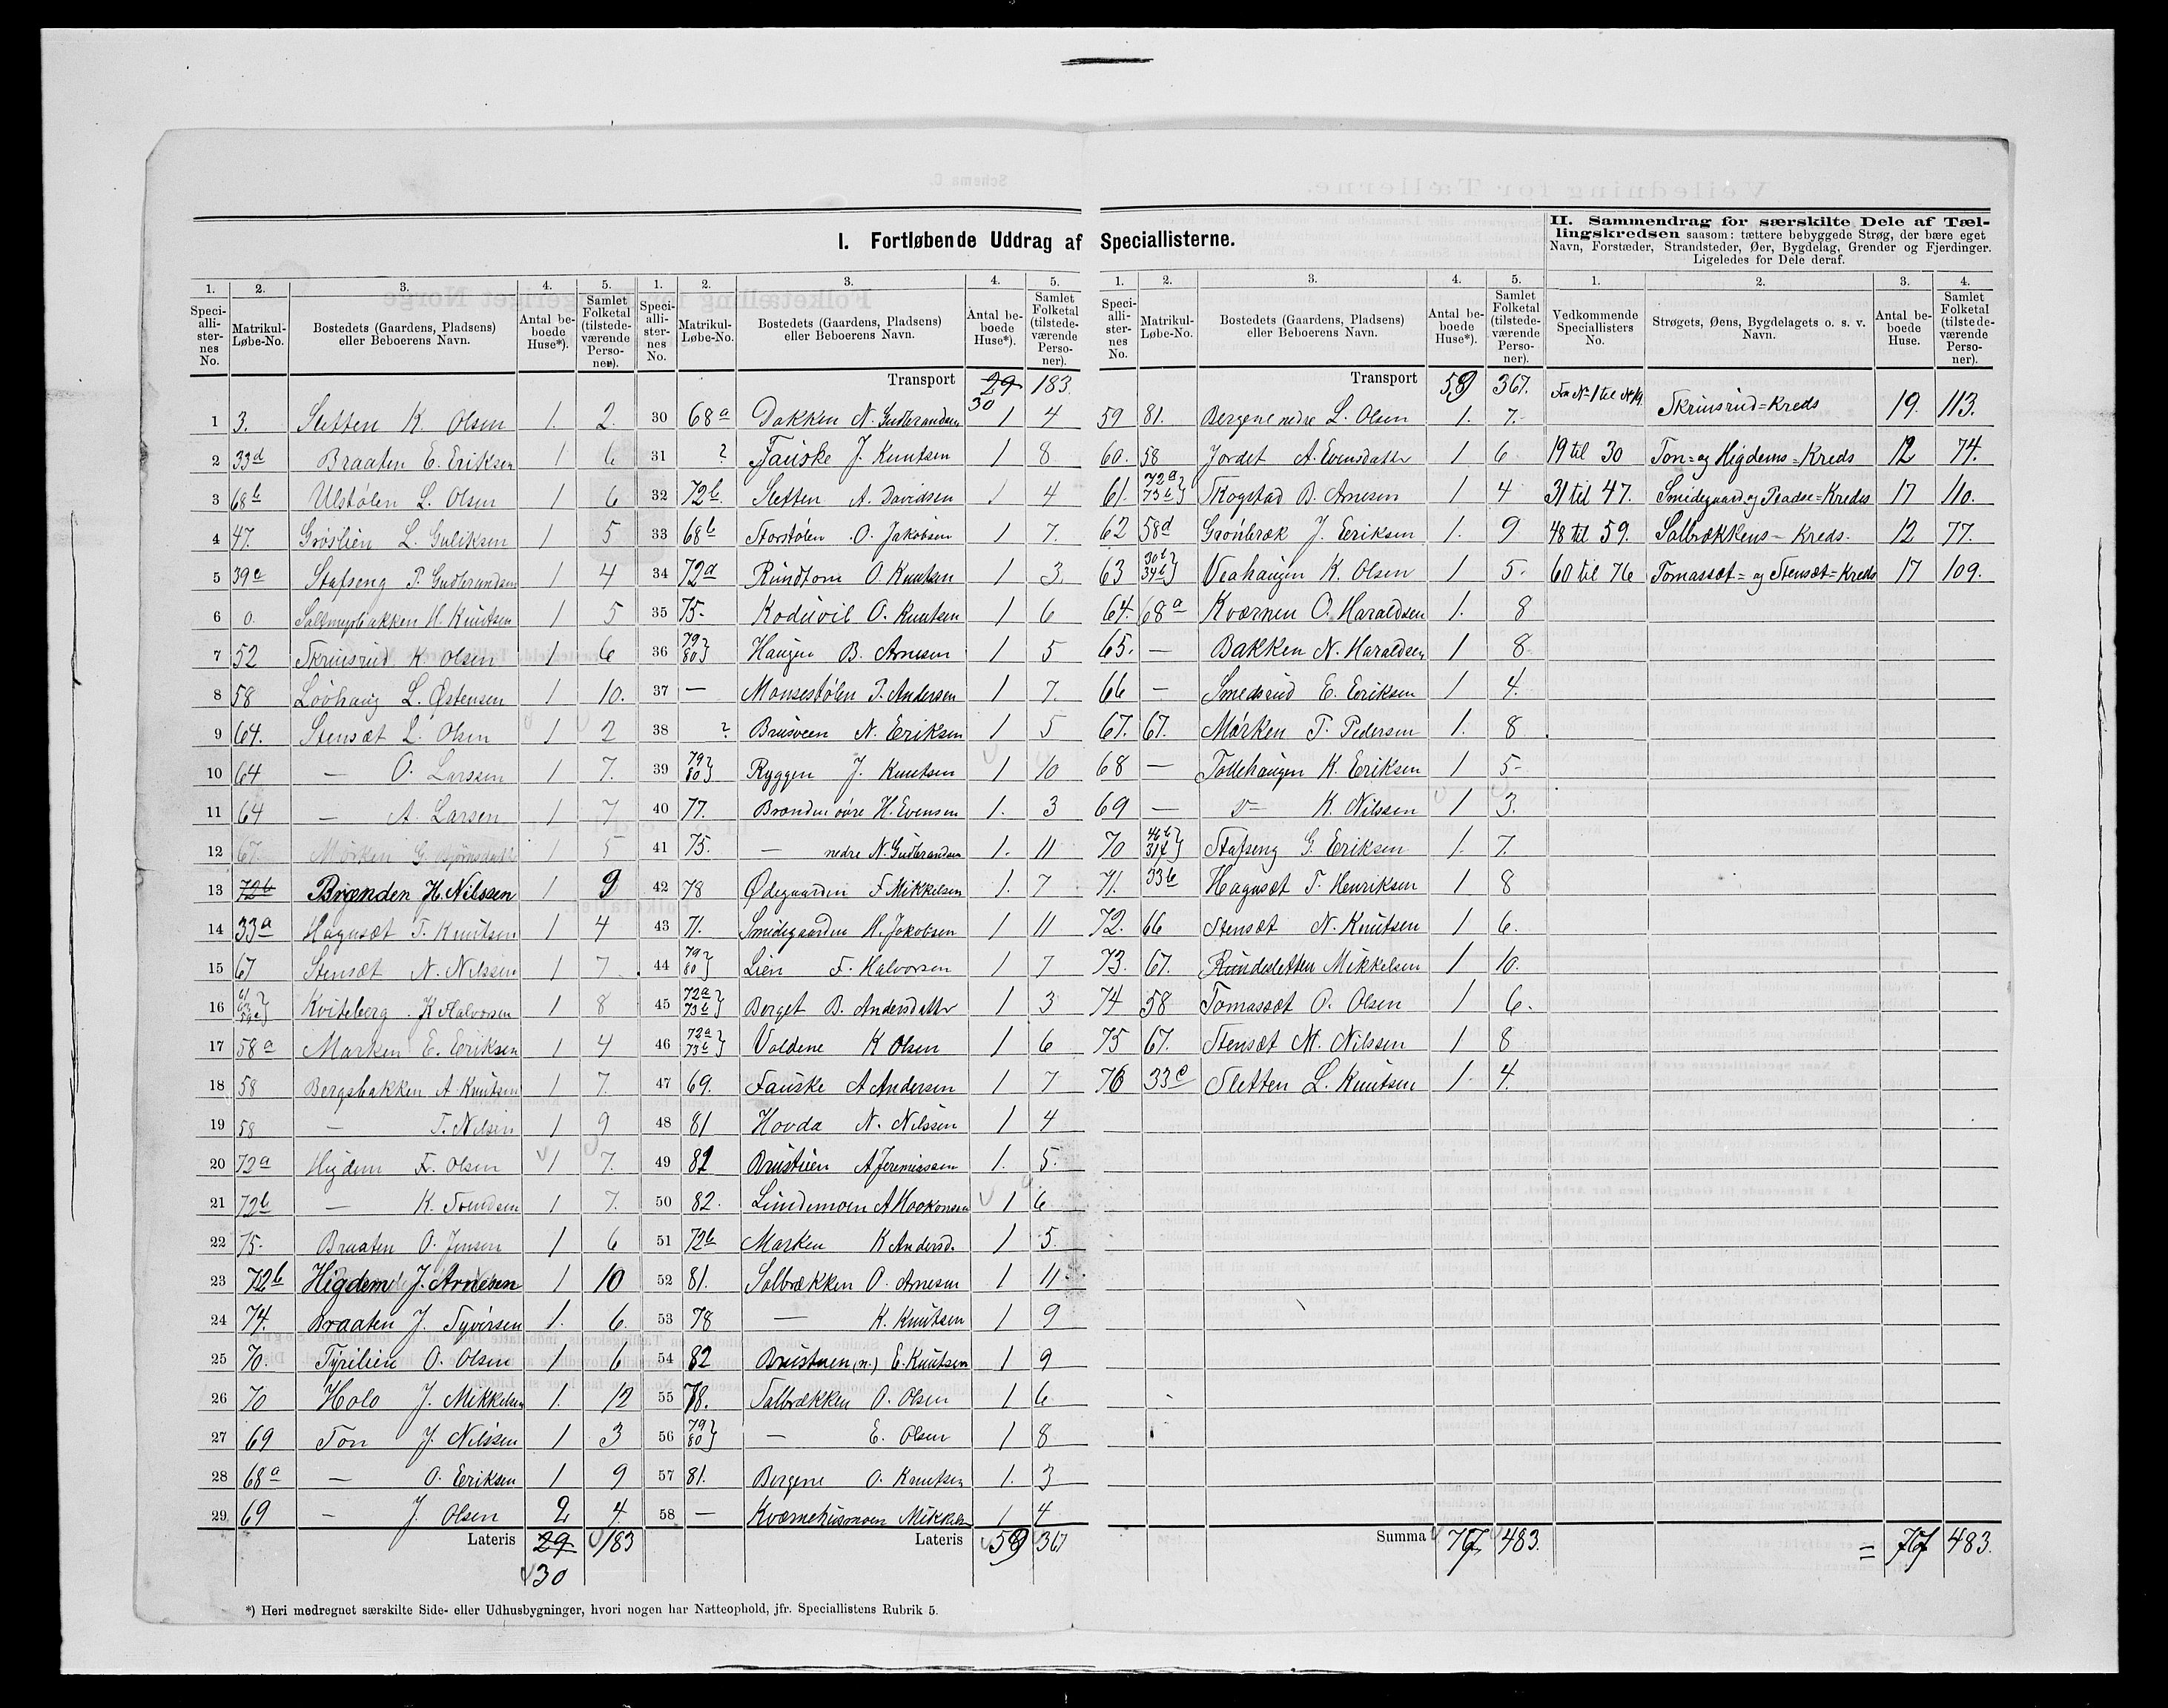 I. Fortløbende Uddrag af Speciallisterne.
II. Sammendrag for særskilte Dele af Tæl-
lingskredsen saasom: tættere bebyggede Strøg, der bære eget
Navn, Forstæder, Strandsteder, Øer, Bygdelag, Grender og Fjerdinger.
Ligeledes for Dele deraf.
1. 2. 3. 4. 5.
Speci-alli-ster-nes No. Matrikul-Løbe-No. Bostedets (Gaardens, Pladsens) eller Beboerens Navn. Antal be-boede Huse*). Samlet Folketal (tilstede-værende Perso-ner).
1 3. Sletten K. Olsen 1. 2.
2 33d Braaten E. Eriksen 1 6
3 68b Ulstølen L. Olsen 1 6
4 47. Grøslien L. Guliksen 1 5
5 39c Stafseng P. Gudbrandsen 1 4
6 0. Saltmyrbakken H. Knutsen 1 5
7 52 Skrinsrud K. Olsen 1 6
8 58 Løvhaug L. Østensen 1 10.
9 64. Stensæt L. Olsen 1 2
10 64 — O. Larssen 1 7.
11 64 — A. Larsen 1 7
12 67 Mørken G. Bjørnsdatt 1 5
13 72b Brænden H. Nilssen 1 9
14 33a Hagasæt T. Knutsen 1 4
15 67 Stensæt N. Nilssen 1 7
16 Kviteberg K Halvorsen 1 8
17 58a Marken E. Eriksen 1 4
18 58 Bergsbakken A. Knutsen 1 7.
19 58 — T. Nilsen 1 9
20 72a Higdem F. Olsen 1 7.
21 72b — K. Svendsen 1 7.
22 75. Braaten O. Jensen 1 6
23 72b Higdem J. Arnesen 1 10
24 74. Braaten J. Syversen 1. 6.
25 70. Tyrilien O. Olsen 1 6
26 70 Holo J. Mikkelsen 1. 12
27 69 Ton J. Nilssen 1 3
28 68a — O. Eriksen 1 9
29 69 — J. Olsen 2 4.
Lateris 29 183
30
1. 2. 3. 4. 5.
Speci-alli-ster-nes No. Matrikul-Løbe-No. Bostedets (Gaardens, Pladsens) eller Beboerens Navn. Antal be-boede Huse*). Samlet Folketal (tilstede-værende Perso-ner).
Transport 29 183.
30
30 68a Bakken N. Gudbrandsen 1 4
31 ? Fauske J. Knutsen 1 8
32 72b. Sletten A. Davidsen 1 4
33 68b Storstølen O. Jakobsen 1 7.
34 72d Rundtom O. Knutsen 1 3.
35 75- Koduvil O. Knutsen 1 6
36 79 80} Haugen B. Arnesen 1 5
37 — Monsestølen P. Andersen 1 7.
38 ? Brusveen N. Eriksen 1 5
39 79 80} Ryggen J. Knutsen 1 10
40 77. Brænden øvre H. Evensen 1. 3
41 75. — nedre N. Gudbrandsen 1. 11
42 78 Ødegaarden F. Mikkelsen 1. 7
43 71. Smidegaarden H. Jakobsen 1 11
44 79 80} Lien F. Halvorsen 1 7
45 72a 73b} Berget B. Andersdattr 1 3
46 72a 73b} Voldene K Olsen 1 6
47 69. Fauske A Andersen 1 7
48 81 Hovda N. Nilssen 1 4
49 82 Brustuen A Jeremiassen 1. 5.
50 82. Lundemoen A Haakonsen 1 6
51 72b Marken K Andersd. 1 5.
52 81. Salbrækken O. Arnesen 1 11
53 78 — K. Knutsen 1 9
54 82 Brustuen (n.) E. Knutsen 1 9
55 78. Salbrækken O. Olsen 1 6
56 79 80} — E. Olsen 1 8
57 81. Bergene O. Knutsen 1. 3
58 — Kværnehusmoen Mikkels 1 4
Lateris 59 367
1. 2. 3. 4. 5.
Speci-alli-ster-nes No. Matrikul-Løbe-No. Bostedets (Gaardens, Pladsens) eller Beboerens Navn. Antal be-boede Huse*). Samlet Folketal (tilstede-værende Perso-ner).
Transport 59 367.
59 81. Bergene nedre L. Olsen 1. 7.
60. 58 Jordet A. Evensdattr 1 6
61. 72a 73b} Skogstad B. Arnesen 1 4
62 58d Grønbræk J. Eriksen 1. 9
63 30b 34b} Veahaugen K. Olsen 1 5-
64. 68a Kværnen O. Haraldsen 1. 8
65. — Bakken N. Haraldsen 1 8
66 — Smedsrud E. Eriksen 1 4.
67. 67. Mørken T. Pedersen 1. 8
68 — Tollehaugen K. Eriksen 1 5-
69 — K. Nilssen 1 3.
70 Stafseng G. Eriksen 1. 7.
71. 33b Hagasæt T. Henriksen 1 8
72. 66 Stensæt N. Knutsen 1 6.
73. 67. Rundesletten Mikkelsen 1 10.
74 58 Tomassæt O. Olsen 1 6.
75 67. Stensæt M. Nilssen 1 8
76 33e Sletten L. Knutsen 1. 4.
Summa 77 483.
1. 2. 3. 4.
Vedkommende Speciallisters No. Strøgets, Øens, Bygdelagets o. s. v. Navn. Antal be-boede Huse. Samlet Folketal (tilstede-værende Perso-ner).
Fra No 1 til No 19. Skrinsrud=Kreds 19. 113.
19 til 30 Ton= og Higdems=Kreds 12 74.
31 til 47. Smidegaard og =Kreds 17 110.
48 til 59. Salbrækkens=Kreds. 12 77.
60 til 76 Tomassæt= og Stensæt=Kreds 17 109.
= 77 483.
*) Heri medregnet særskilte Side- eller Udhusbygninger, hvori nogen har Natteophold, jfr. Speciallistens Rubrik 5.